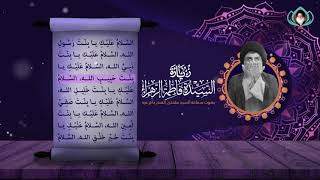 السَّلامُ عَلَيْكِ يا بِنْتَ رَسُولِ
اللهِ، السَّلامُ عَلَيْكِ يا بِنْتَ
نَبِيِّ اللهِ، السَّلامُ عَلَيْكِ يا
بِنْتَ حَبيبِ اللهِ، السَّلامُ
عَلَيْكِ يا بِنْتَ خَليلِ اللهِ،
السَّلامُ عَلَيْكِ يا بِنْتَ صَفِيِّ
اللهِ، السَّلامُ عَلَيْكِ يا بِنْتَ
أمينِ اللهِ، السَّلامُ عَلَيْكِ يا
بِنْتَ خَيْرِ خَلْقِ اللهِ، السَّلامُ
زيارة
السيدة فاطمة الزهراء
بصوت سماحة السيد مقتدى الصدر